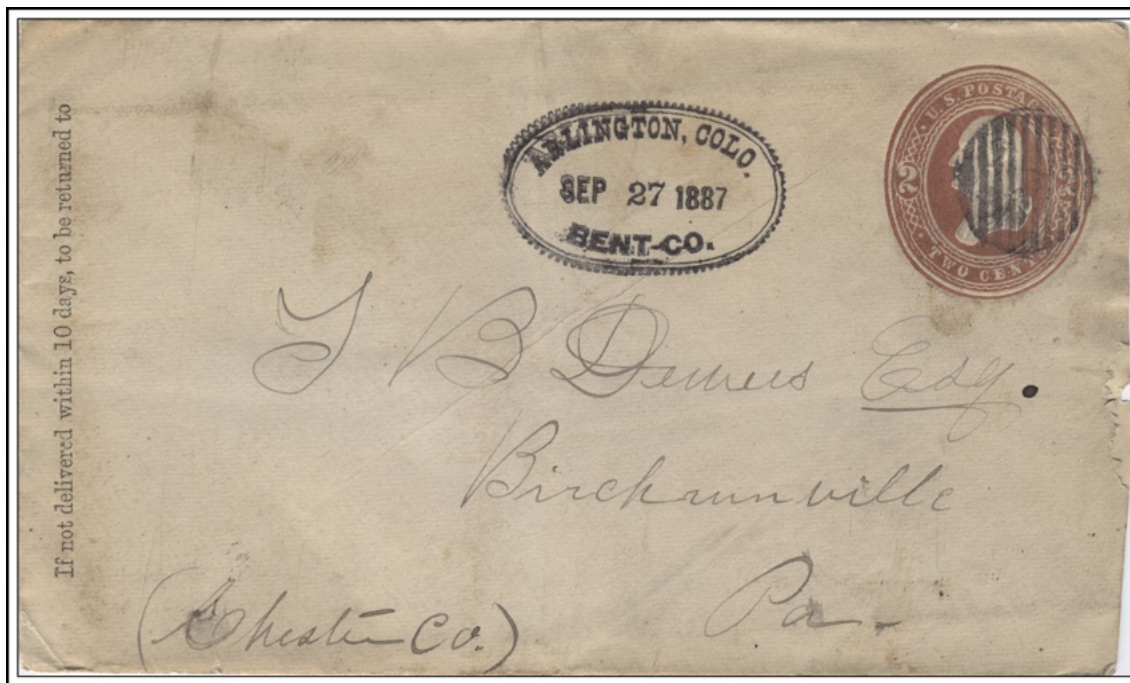 If not delivered within 10 days, to be returned to
ARLINGTON, COLO.
SEP 27 1887
BENT-CO.
U.S. POSTAGE
2 2
TWO CENTS
B Esq.
Birchrunville
Pa.
(Chester Co.)